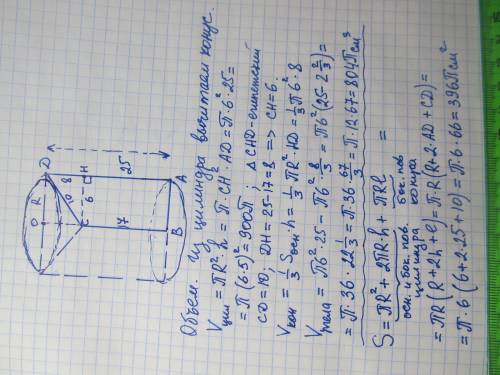 O R
D
8
10
H
C 6
25
17
B
A
Объем. Из цилиндра вычитаем конус.
Vцил = πR²·h = π·CH²·AD = π·6²·25 =
= π(6·5)² = 900π; △CHD-египетский
CD=10, DH=25-17=8 => CH=6.
Vкон = 1/3 Sосн·h = 1/3 πR²·HD = 1/3 π6²·8
Vтела = π6²·25 - π6²·8/3 = π6²(25-2 2/3) =
= π·36·22 1/3 = π·36·67/3 = π·12·67 = 804π см³
S = πR² + 2πR·h + πRl =
осн. и бок. пов. цилиндра
бок. пов. конуса
= πR(R+2h+l) = π·R(R+2·AD+CD) =
= π·6(6+2·25+10) = π·6·66 = 396π см²